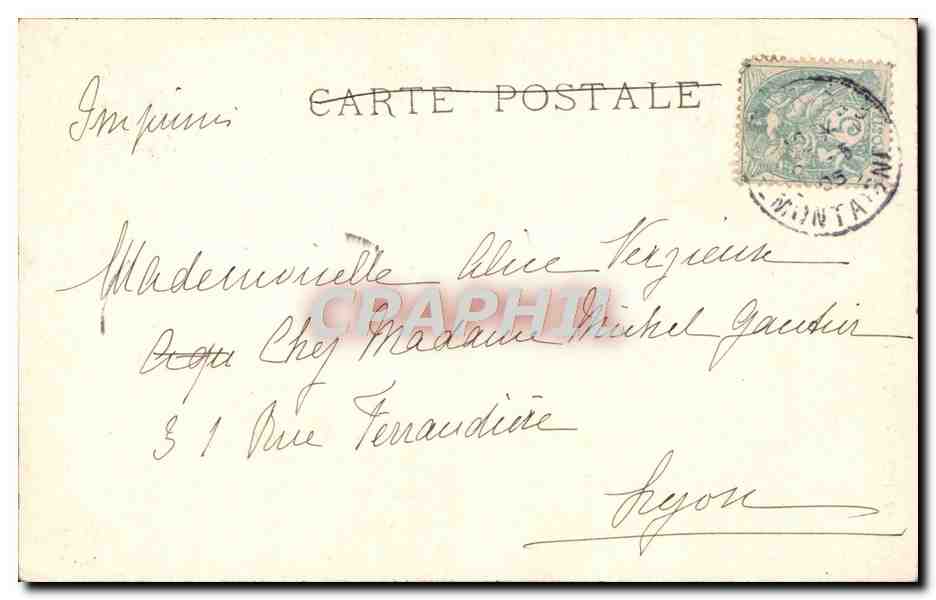 Imprimés
CARTE POSTALE
5
05
MONTAGNY
Mademoiselle Alice Verzieux
Chez Madame Michel Gautier
31 Rue Ferrandière
Lyon